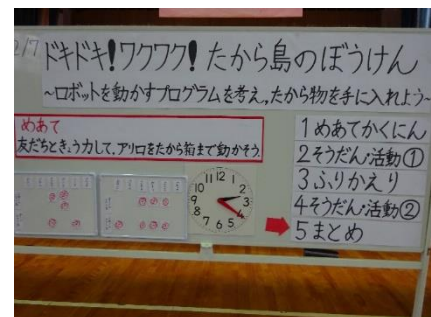 2/7
ドキドキ!ワクワク!たから島のぼうけん
~ロボットを動かすプログラムを考え、たから物を手に入れよう~
めあて
友だちときょう力して、アリロをたから箱まで動かそう。
1めあてかくにん
2そうだん・活動①
3ふりかえり
4そうだん・活動②
5まとめ
12
1
2
3
4
5
6
7
8
9
10
11